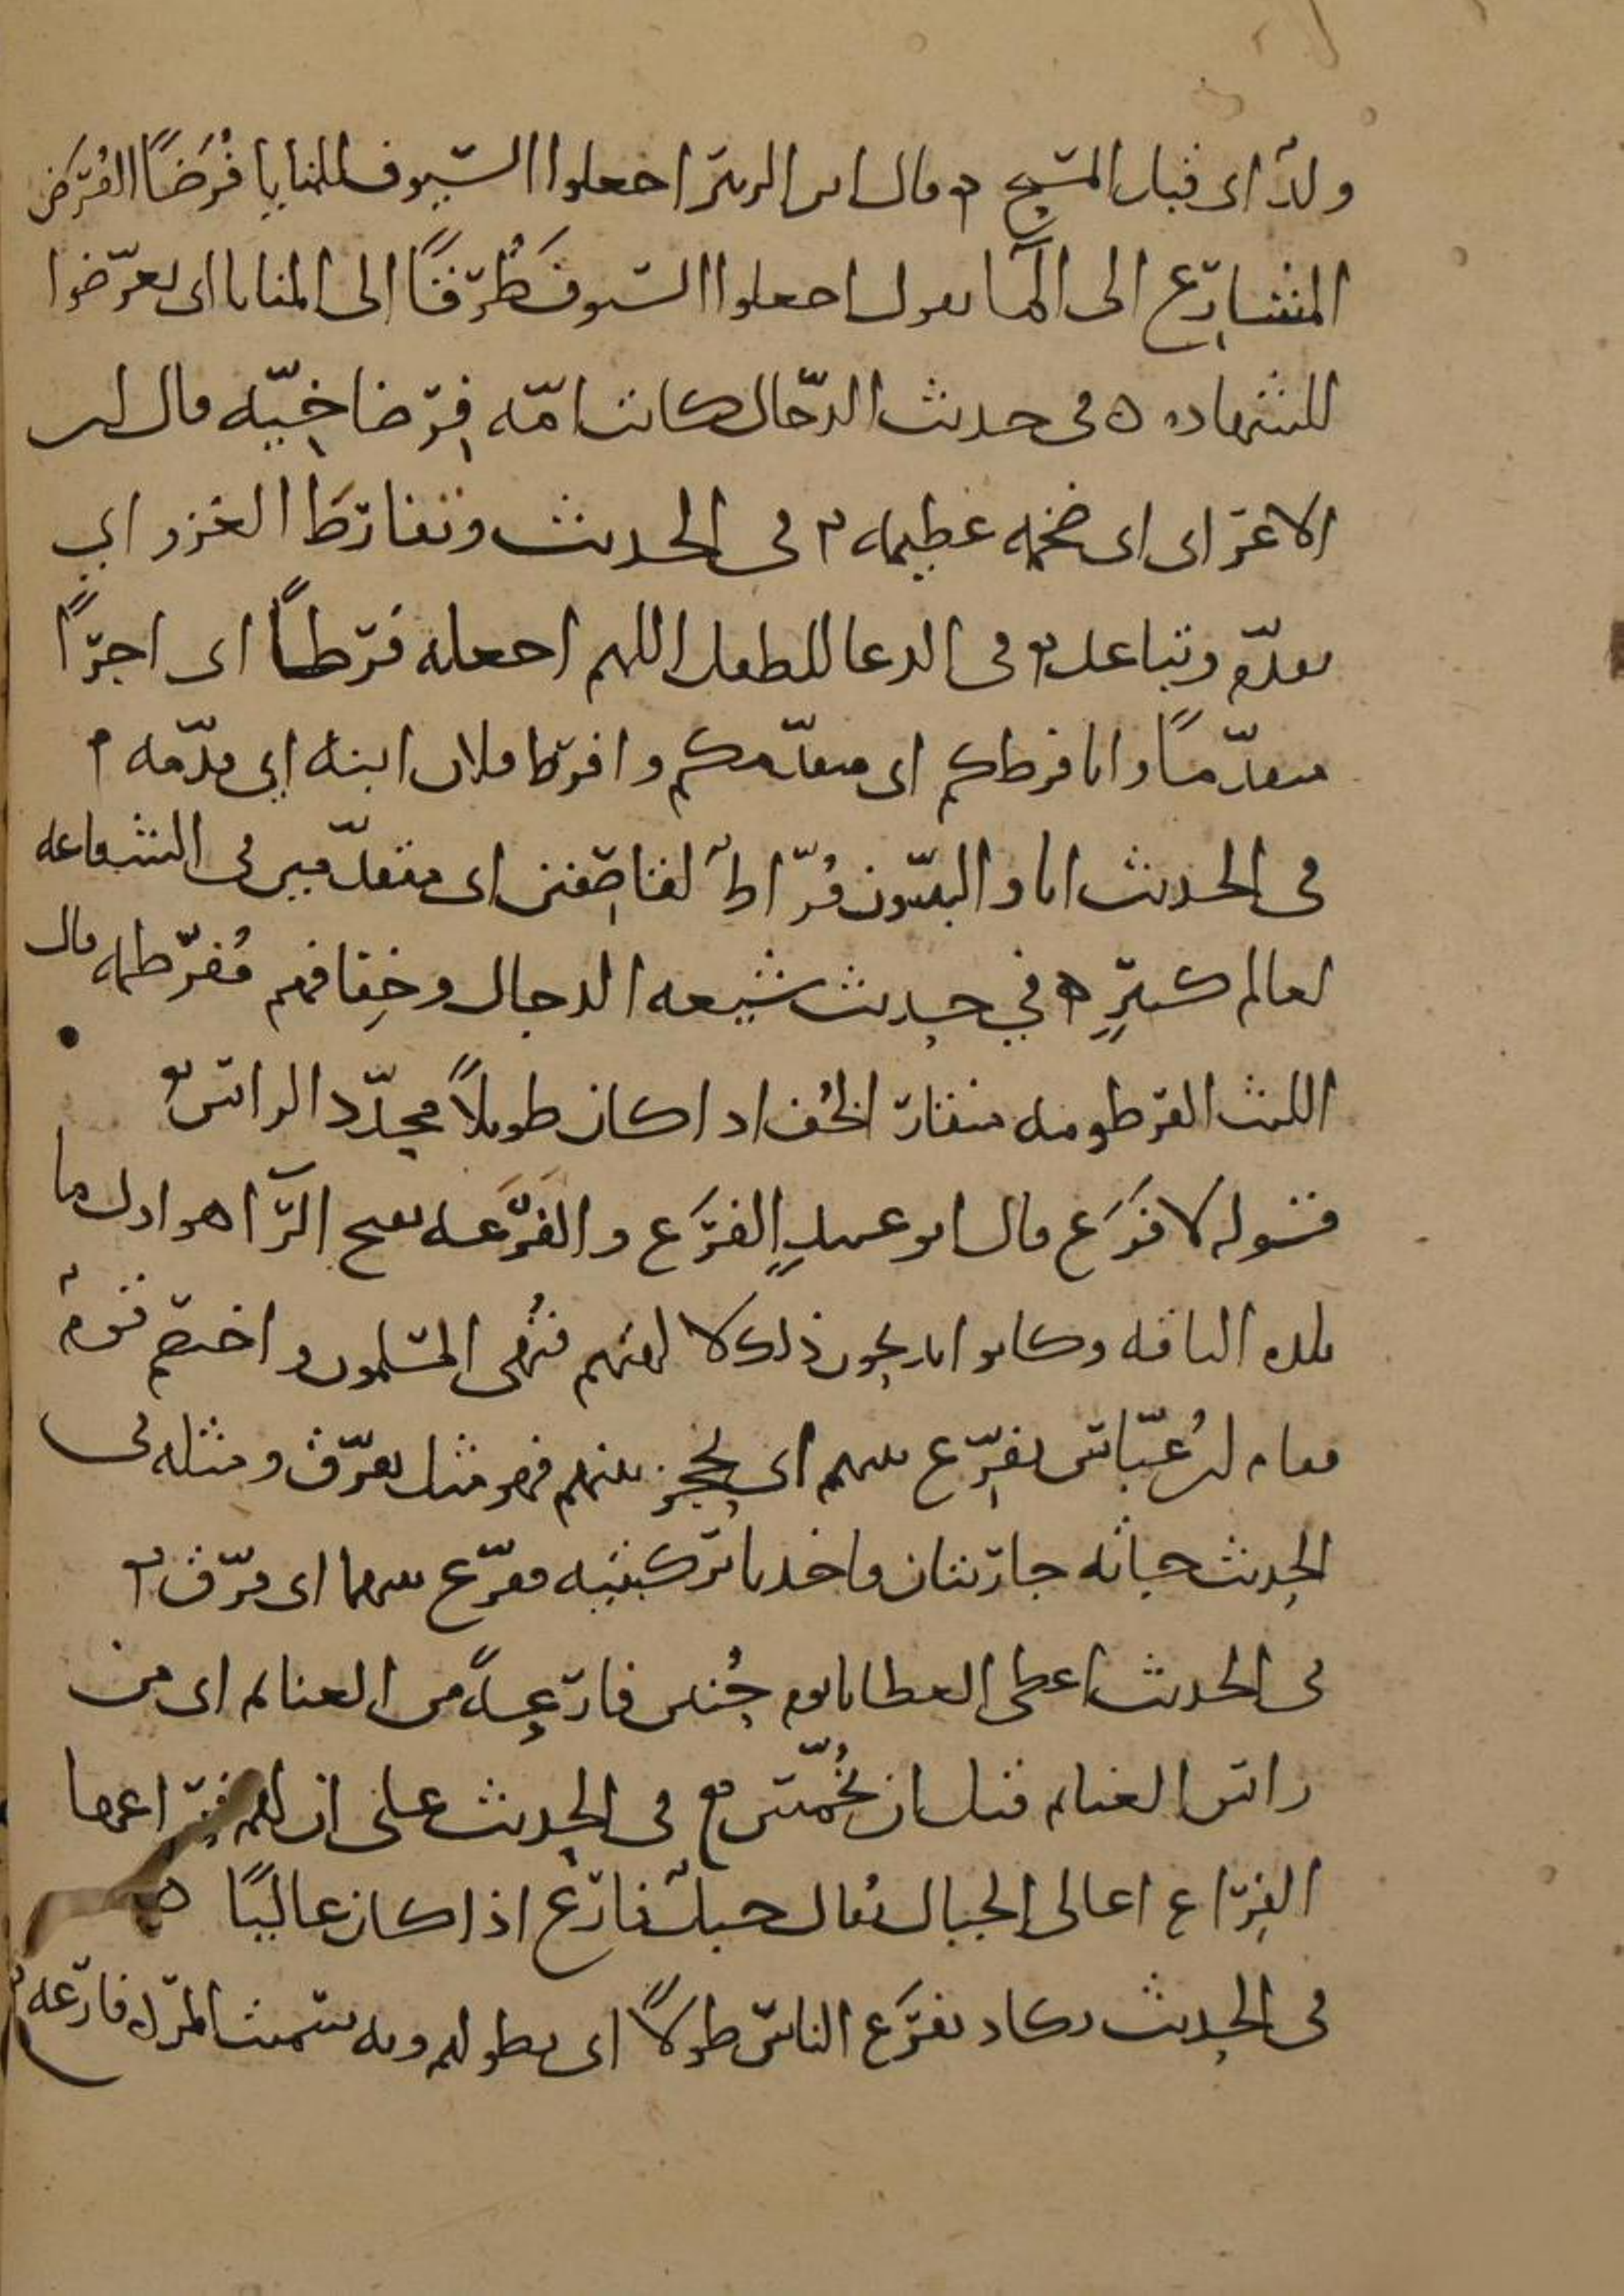 ولد اى قبل المسيح ۞ قال ابن الزبير اجعلوا السيوف للمنايا فُرَضًا الفُرَض
المشارع الى الما يقول اجعلوا السيوف طُرقًا الى المنايا اى تعرّضوا
للشهاده ۞ فى حديث الدجال كانت امّه فِرضاخِيّه قال ابن
الاعرابى اى ضخمه عظيمه ۞ فى الحديث وتفارَطَ الغزو اي
تقدّم وتباعد ۞ فى الدعا للطفل اللهم اجعله فرطًا اى اجرًا
متقدّمًا وانا فرطكم اى متقدّمكم وافرط فلان ابنه اي قدّمه ۞
فى الحديث انا والنبيّون فُرّاط لقاصفين اى متقدّمين فى الشفاعه
لعالم كبيرٍ ۞ في حديث شيعه الدجال وخِفافهم مُفرطمه قال
الليث الفرطومه منقار الخُف اذا كان طويلاً محدّد الراس ۞
قوله لا فَرَع قال ابو عبيدٍ الفَرَع والفَرَعه بفتح الرَّا هو اول ما
تلده الناقه وكانوا يذبحون ذلك لالهتهم فنُهى المسلمون واختصم قوم
فقام ابن عبّاس يفرّع بينهم اى يحجز بينهم فهو مثل يفرّق ومثله فى
الحديث جاته جاريتان فاخذتا بركبتيه ففرّع بينهما اى فرّق ۞
فى الحديث اعطى العطايا يوم حُنين فارعةً من الغنايم اى من
راس الغنايم قبل ان تُخمّس ۞ فى الحديث على ان لهم فِراعها
الفِراع اعالى الجبال يُقال جبل فارع اذا كان عاليًا ۞
فى الحديث يكاد يفرَع الناس طولاً اى يطولهم وبه سميت المراه فارعه ۞